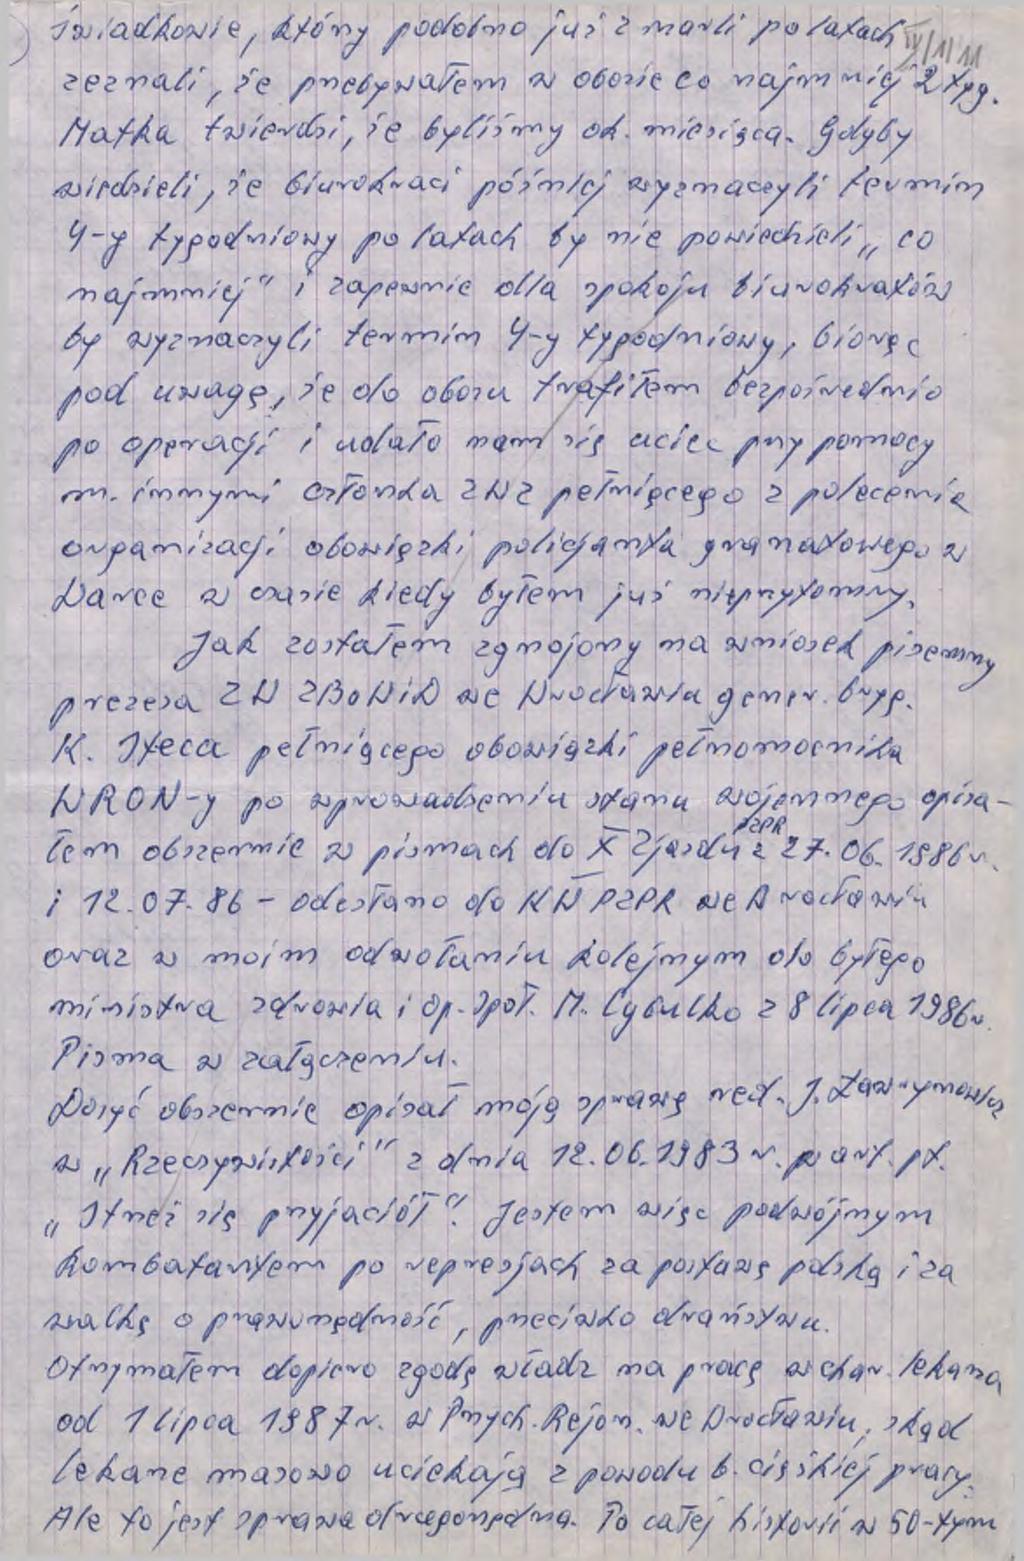 IV/11/11
świadkowie, którzy podobno już zmarli po latach
zeznali, że przebywałem w obozie co najmniej 2 tyg.
Matka twierdzi, że byliśmy ok. miesiąca. Gdyby
wiedzieli, że biurokraci później wyznaczyli termin
4-y tygodniowy po latach by nie powiedzieli „co
najmniej" i zapewnie dla spokoju biurokratów
by wyznaczyli termin 4-y tygodniowy, biorąc
pod uwagę, że do obozu trafiłem bezpośrednio
po operacji i udało nam się uciec przy pomocy
m. innymi członka ZWZ pełniącego z polecenia
organizacji obowiązki policjanta granatowego w
Warce w czasie kiedy byłem już nieprzytomny.
Jak zostałem zgnojony na wniosek pisemny
prezesa ZW ZBoWiD we Wrocławiu gener. bryg.
K. Steca pełniącego obowiązki pełnomocnika
WRON-y po wprowadzeniu stanu wojennego opisa-
łem obszernie w pismach do X Zjazdu PZPR z 27.06.1986r.
i 12.07.86 - odesłano do KW PZPR we Wrocławiu
oraz w moim odwołaniu kolejnym do byłego
ministra zdrowia i Op. Społ. M. Cybulko z 8 lipca 1986r.
Pisma w załączeniu.
Dosyć obszernie opisał moją sprawę red. J.
w „Rzeczywistości" z dnia 12.06.1983 r. w art. pt.
„Strzeż się przyjaciół". Jestem więc podwójnym
kombatantem po represjach za postawę polską i za
walkę o praworządność, przeciwko draństwu.
Otrzymałem dopiero zgodę władz na pracę w char. lekarza
od 1 lipca 1987r. w Przych. Rejon. we Wrocławiu, skąd
lekarze masowo uciekają z powodu b. ciężkiej pracy.
Ale to jest sprawa drugorzędna. Po całej historii w 50-tym